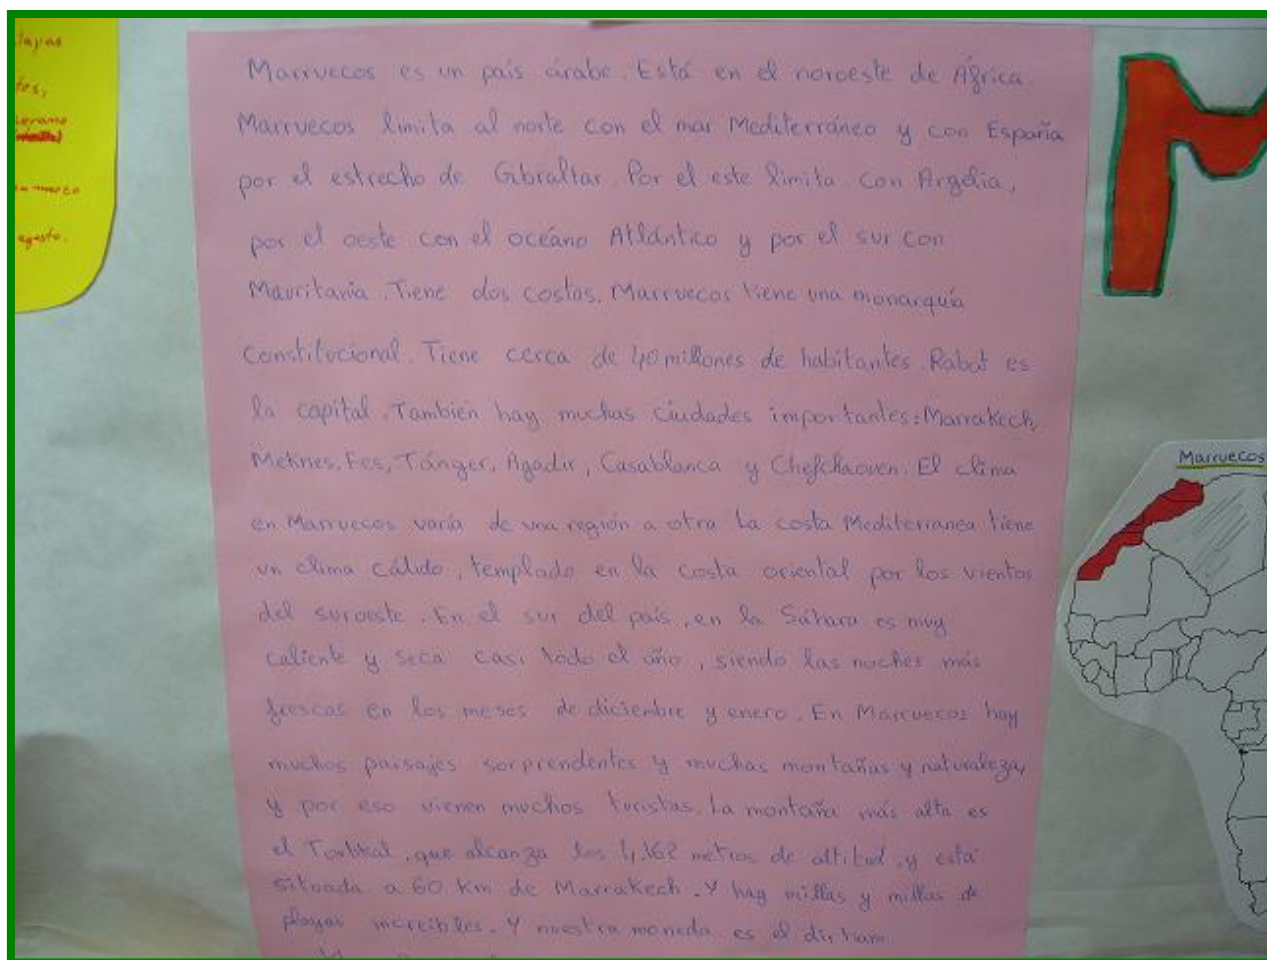 layas
tes,
verano
en marzo
agosto.
Marruecos es un país árabe. Está en el noroeste de África.
Marruecos limita al norte con el mar Mediterráneo y con España
por el estrecho de Gibraltar. Por el este limita con Argelia,
por el oeste con el océano Atlántico y por el sur con
Mauritania. Tiene dos costas. Marruecos tiene una monarquía
Constitucional. Tiene cerca de 40 millones de habitantes. Rabat es
la capital. También hay muchas ciudades importantes: Marrakech,
Meknes, Fes, Tánger, Agadir, Casablanca y Chefchaouen. El clima
en Marruecos varía de una región a otra La costa Mediterranea tiene
un clima cálido, templado en la costa oriental por los vientos
del suroeste. En el sur del país, en la Sáhara es muy
caliente y seca casi todo el año, siendo las noches más
frescas en los meses de diciembre y enero. En Marruecos hay
muchos paisajes sorprendentes y muchas montañas y naturaleza,
y por eso vienen muchos turistas. La montaña más alta es
el Toubkal, que alcanza los 4.162 metros de altitud, y está
situada a 60 Km de Marrakech. Y hay millas y millas de
playas increíbles. Y nuestra moneda es el dirham.
M
Marruecos